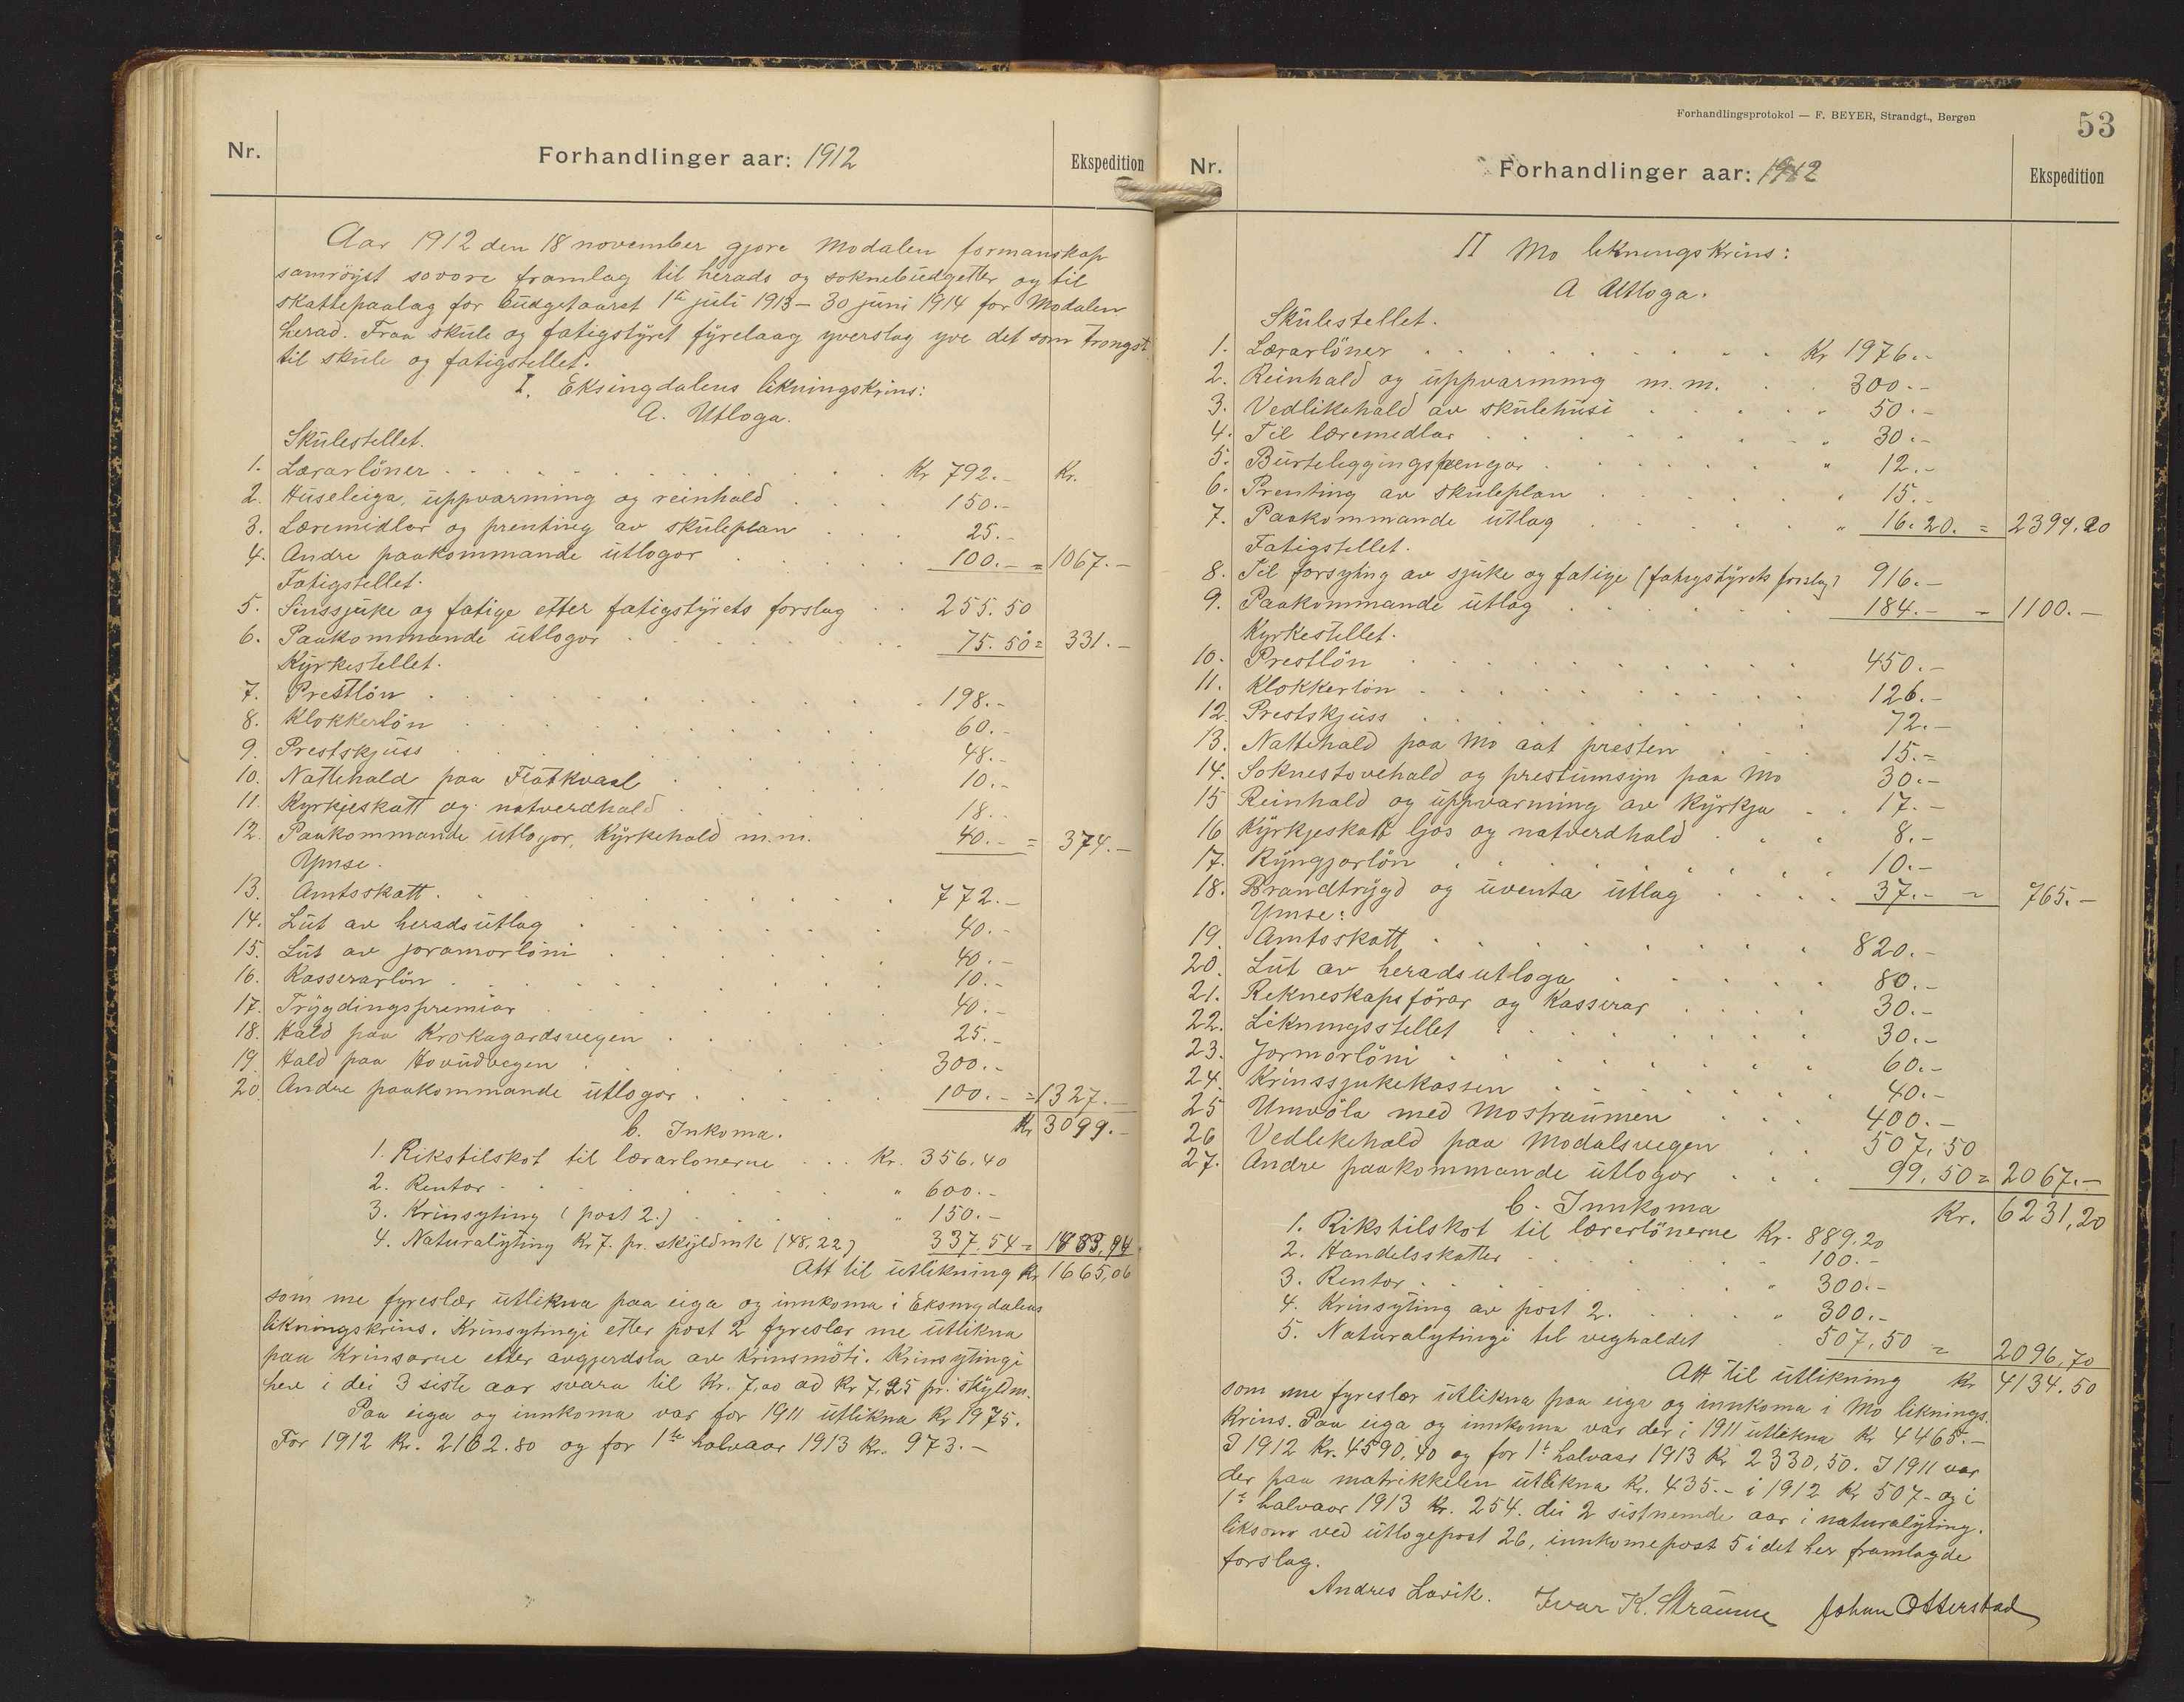 Nr.
Forhandlinger aar: 1912
Ekspedition
Aar 1912 den 18 november gjore Modalen formanskap
samröyst sovore framlag til herads og soknebudgetter og til
skattepaalag for budgetaaret 1ste juli 1913 – 30 juni 1914 for Modalen
herad. Fraa skule og fatigstyret fyrelaag yverslag yve det som trongst
til skule og fatigstellet.
I. Eksingdalens likningskrins:
A. Utloga.
Skulestellet.
1. Lærarlöner . . . Kr 792.- Kr.
2. Huseleiga, uppvarming og reinhald . . . 150.-
3. Læremidlar og prenting av skuleplan . . . 25.-
4. Andre paakommande utlogor . . . 100.- = 1067.-
Fatigstellet.
5. Sinssjuke og fatige etter fatigstyrets forslag . . 255.50
6. Paakommande utlogor . . . 75.50 = 331.-
Kyrkestellet.
7. Prestlön . . . 198.-
8. Klokkerlön . . . 60.-
9. Prestskjuss . . . 48.-
10. Nattehald paa Flatkvaal . . . 10.-
11. Kyrkjeskatt og natverdhald . . . 18.-
12. Paakommande utlogor, Kyrkehald m.m. 40.- = 374.-
Ymse.
13. Amtsskatt . . . 772.-
14. Lut av heradsutlog . . . 40.-
15. Lut av joramorlöni . . . 40.-
16. Kasserarlön . . . 10.-
17. Trygdingspremiar . . . 40.-
18. Hald paa Krokagardsvegen . . . 25.-
19. Hald paa Hovudvegen . . . 300.-
20. Andre paakommande utlogor . . . 100.- = 1327.-
Kr 3099.-
b. Inkoma.
1. Rikstilskot til lærarlonerne . . . Kr. 356.40
2. Rentor . . . " 600.-
3. Krinsyting (post 2.) . . . " 150.-
4. Naturalyting Kr 7. pr. skyldmk (48,22) 337.54 = 1433,94
Att til utlikning Kr 1665,06
som me fyreslær utlikna paa eiga og innkoma i Eksingdalens
likningskrins. Krinsytingi etter post 2 fyreslær me utlikna
paa Krinsarne etter avgjerdsla av Krinsmöti. Krinsytingi
hev i dei 3 siste aar svara til Kr. 7,00 ad Kr 7,25 pr. skyldm.
Paa eiga og innkoma var for 1911 utlikna Kr 1975.
For 1912 Kr. 2162.80 og for 1ste halvaar 1913 Kr. 973.-
Forhandlingsprotokol — F. BEYER, Strandgt., Bergen
53
Nr.
Forhandlinger aar: 1912
Ekspedition
II Mo likningskrins:
A Utloga.
Skulestellet.
1. Lærarlöner . . . Kr 1976.-
2. Reinhald og uppvarming m.m. . . 300.-
3. Vedlikehald av skulehusi . . . " 50.-
4. Til læremedlar . . . " 30.-
5. Burteleggingspengar . . . " 12.-
6. Prenting av skuleplan . . . " 15.-
7. Paakommande utlog . . . " 16.20. = 2399.20
Fatigstellet.
8. Til forsyting av sjuke og fatige (fatigstyrets forslag) 916.-
9. Paakommande utlog . . . 184.- = 1100.-
Kyrkestellet.
10. Prestlön . . . 450.-
11. Klokkerlön . . . 126.-
12. Prestskjuss . . . 72.-
13. Nattehald paa Mo aat presten . . . 15.-
14. Soknestovehald og prestumsyn paa Mo 30.-
15 Reinhald og uppvarming av Kyrkja . . 17.-
16 Kyrkjeskatt ljos og natverdhald . . . 8.-
17. Ryngjarlön . . . 10.-
18. Brandtrygd og uventa utlog . . . 37.- = 765.-
Ymse:
19. Amtsskatt . . . 820.-
20. Lut av heradsutloga . . . 80.-
21. Rekneskapsförar og Kasserar . . . 30.-
22. Likningsstellet . . . 30.-
23. Jormorlöni . . . 60.-
24. Krinssjukekassen . . . 40.-
25 Umvöla med Mostraumen . . . 400.-
26 Vedlikehald paa Modalsvegen . . 507,50
27. Andre paakommande utlogor . . . 99,50 = 2067.-
Kr. 6231,20
b. Innkoma
1. Rikstilskot til lærerlönerne Kr. 889.20
2. Handelsskatter . . . " 100.-
3. Rentor . . . " 300.-
4. Krinsyting av post 2. . . . " 300.-
5. Naturalytingi til veghaldet . 507,50 = 2096,70
Att til utlikning Kr 4134.50
som me fyreslær utlikna paa eiga og innkoma i Mo liknings
krins. Paa eiga og innkoma var der i 1911 utlikna Kr 4465.-
I 1912 Kr. 4590,40 og for 1ste halvaar 1913 Kr 2330,50. I 1911 var
der paa matrikkelen utlikna Kr. 435.- i 1912 Kr 507- og i
1ste halvaar 1913 Kr. 254. dei 2 sistnemde aar i naturalyting.
liksom ved utlogepost 26, innkomepost 5 i det her framlagde
forslag.
Andres Lavik. Ivar K. Straume Johan Otterstad